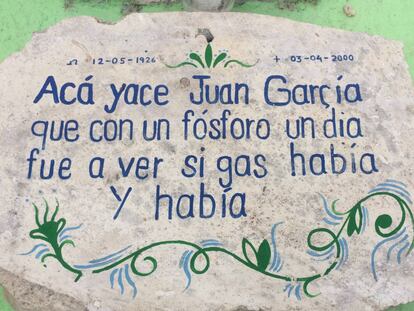 Ω 12-05-1926 + 03-04-2000
Acá yace Juan García
que con un fósforo un dia
fue a ver si gas había
Y había